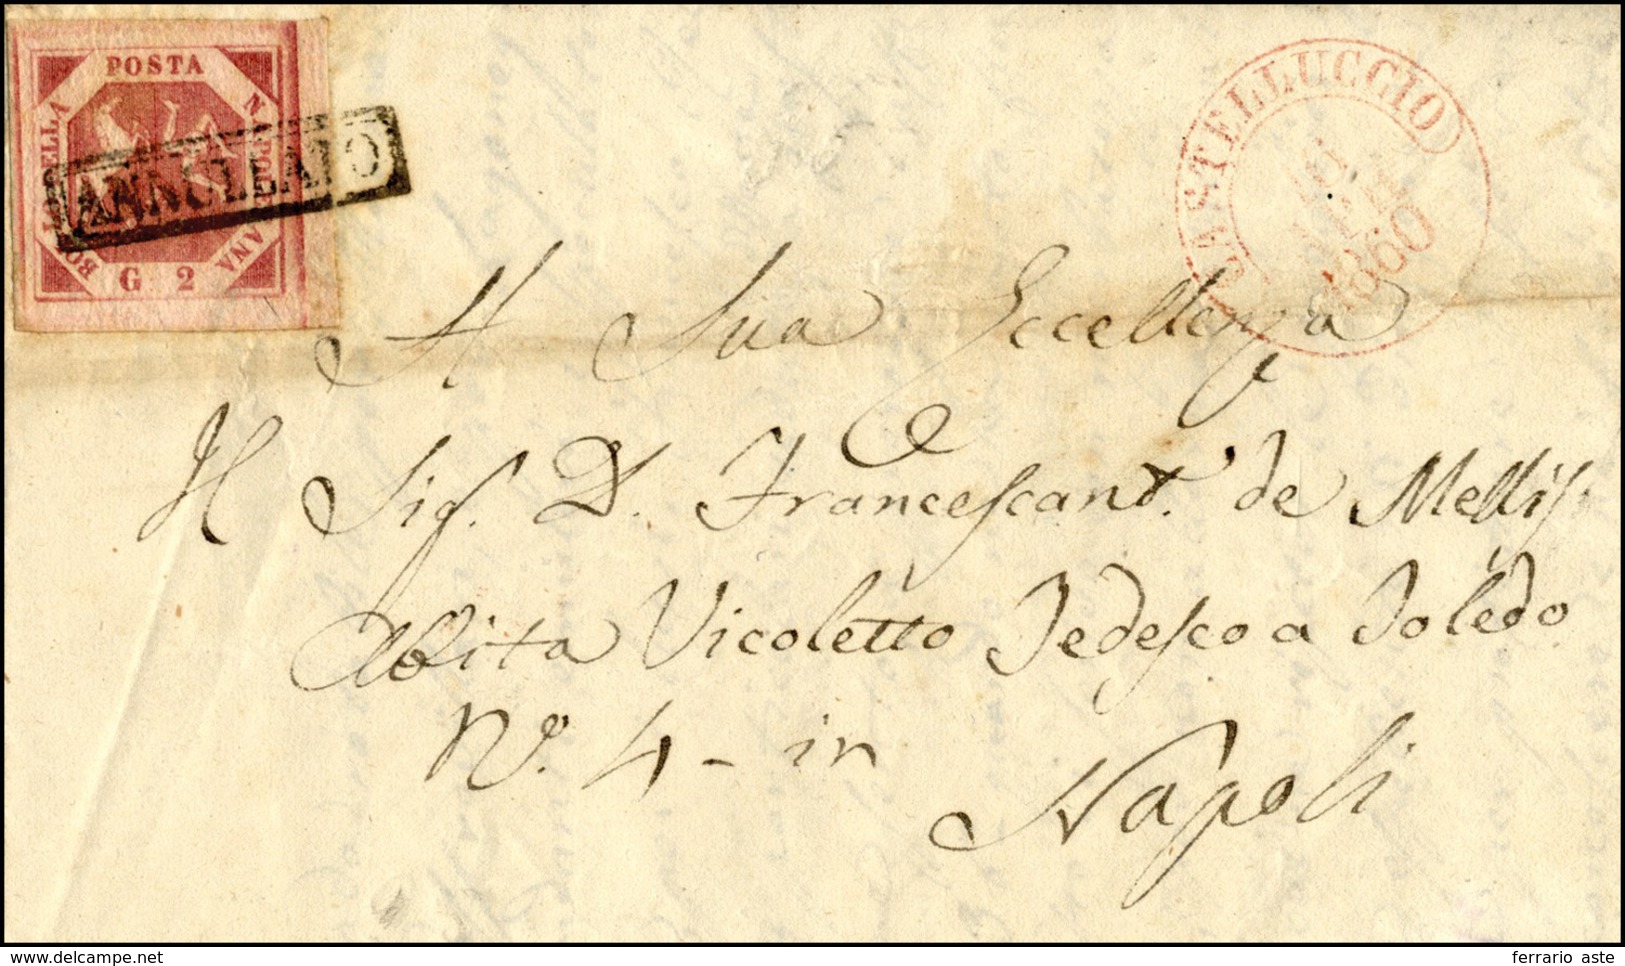 POSTA
NAPOLETANA
BOLLO DELLA
G 2
ANNULLATO
CASTELLUCCIO
1860
A Sua Eccellenza
Il Sig. D. Francescant. de Mellis
Abita Vicoletto Tedesco a Toledo
No. 4 - in
Napoli
ferrario aste